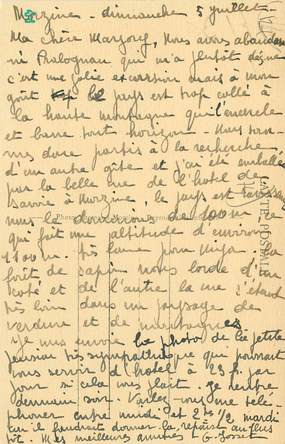 Morzine - dimanche 5 Juillet -
Ma chère Marjory, Nous avons abandon
né Pralognan qui m'a plutôt déçue
c'est une jolie excursion mais à mon
goût le pays est trop collé à
la haute montagne qui l'encercle
et barre tout horizon - Nous som-
mes donc partis à la recherche
d'un autre gîte et j'ai été emballée
par la belle vue de l'hôtel de
Savoie à Morzine, le pays est
nous le dominons de 100 m ce
qui fait une altitude d'environ
1100 m. très bonne pour la
forêt de sapin nous borde d'un
côté et de l'autre la vue s'étend
très loin dans un paysage de
verdure et de montagnes
Je vous envoie la photo de la petite
pension très sympathique qui pourrait
vous servir d'hôtel à 23 f. par
jour si cela vous plaît. Je rentre
demain soir. Voulez-vous me télé-
phoner entre midi et 2 hs 1/2 mardi
car il faudrait donner la réponse au plus
vite. Mes meilleures amitiés
CARTE POSTALE